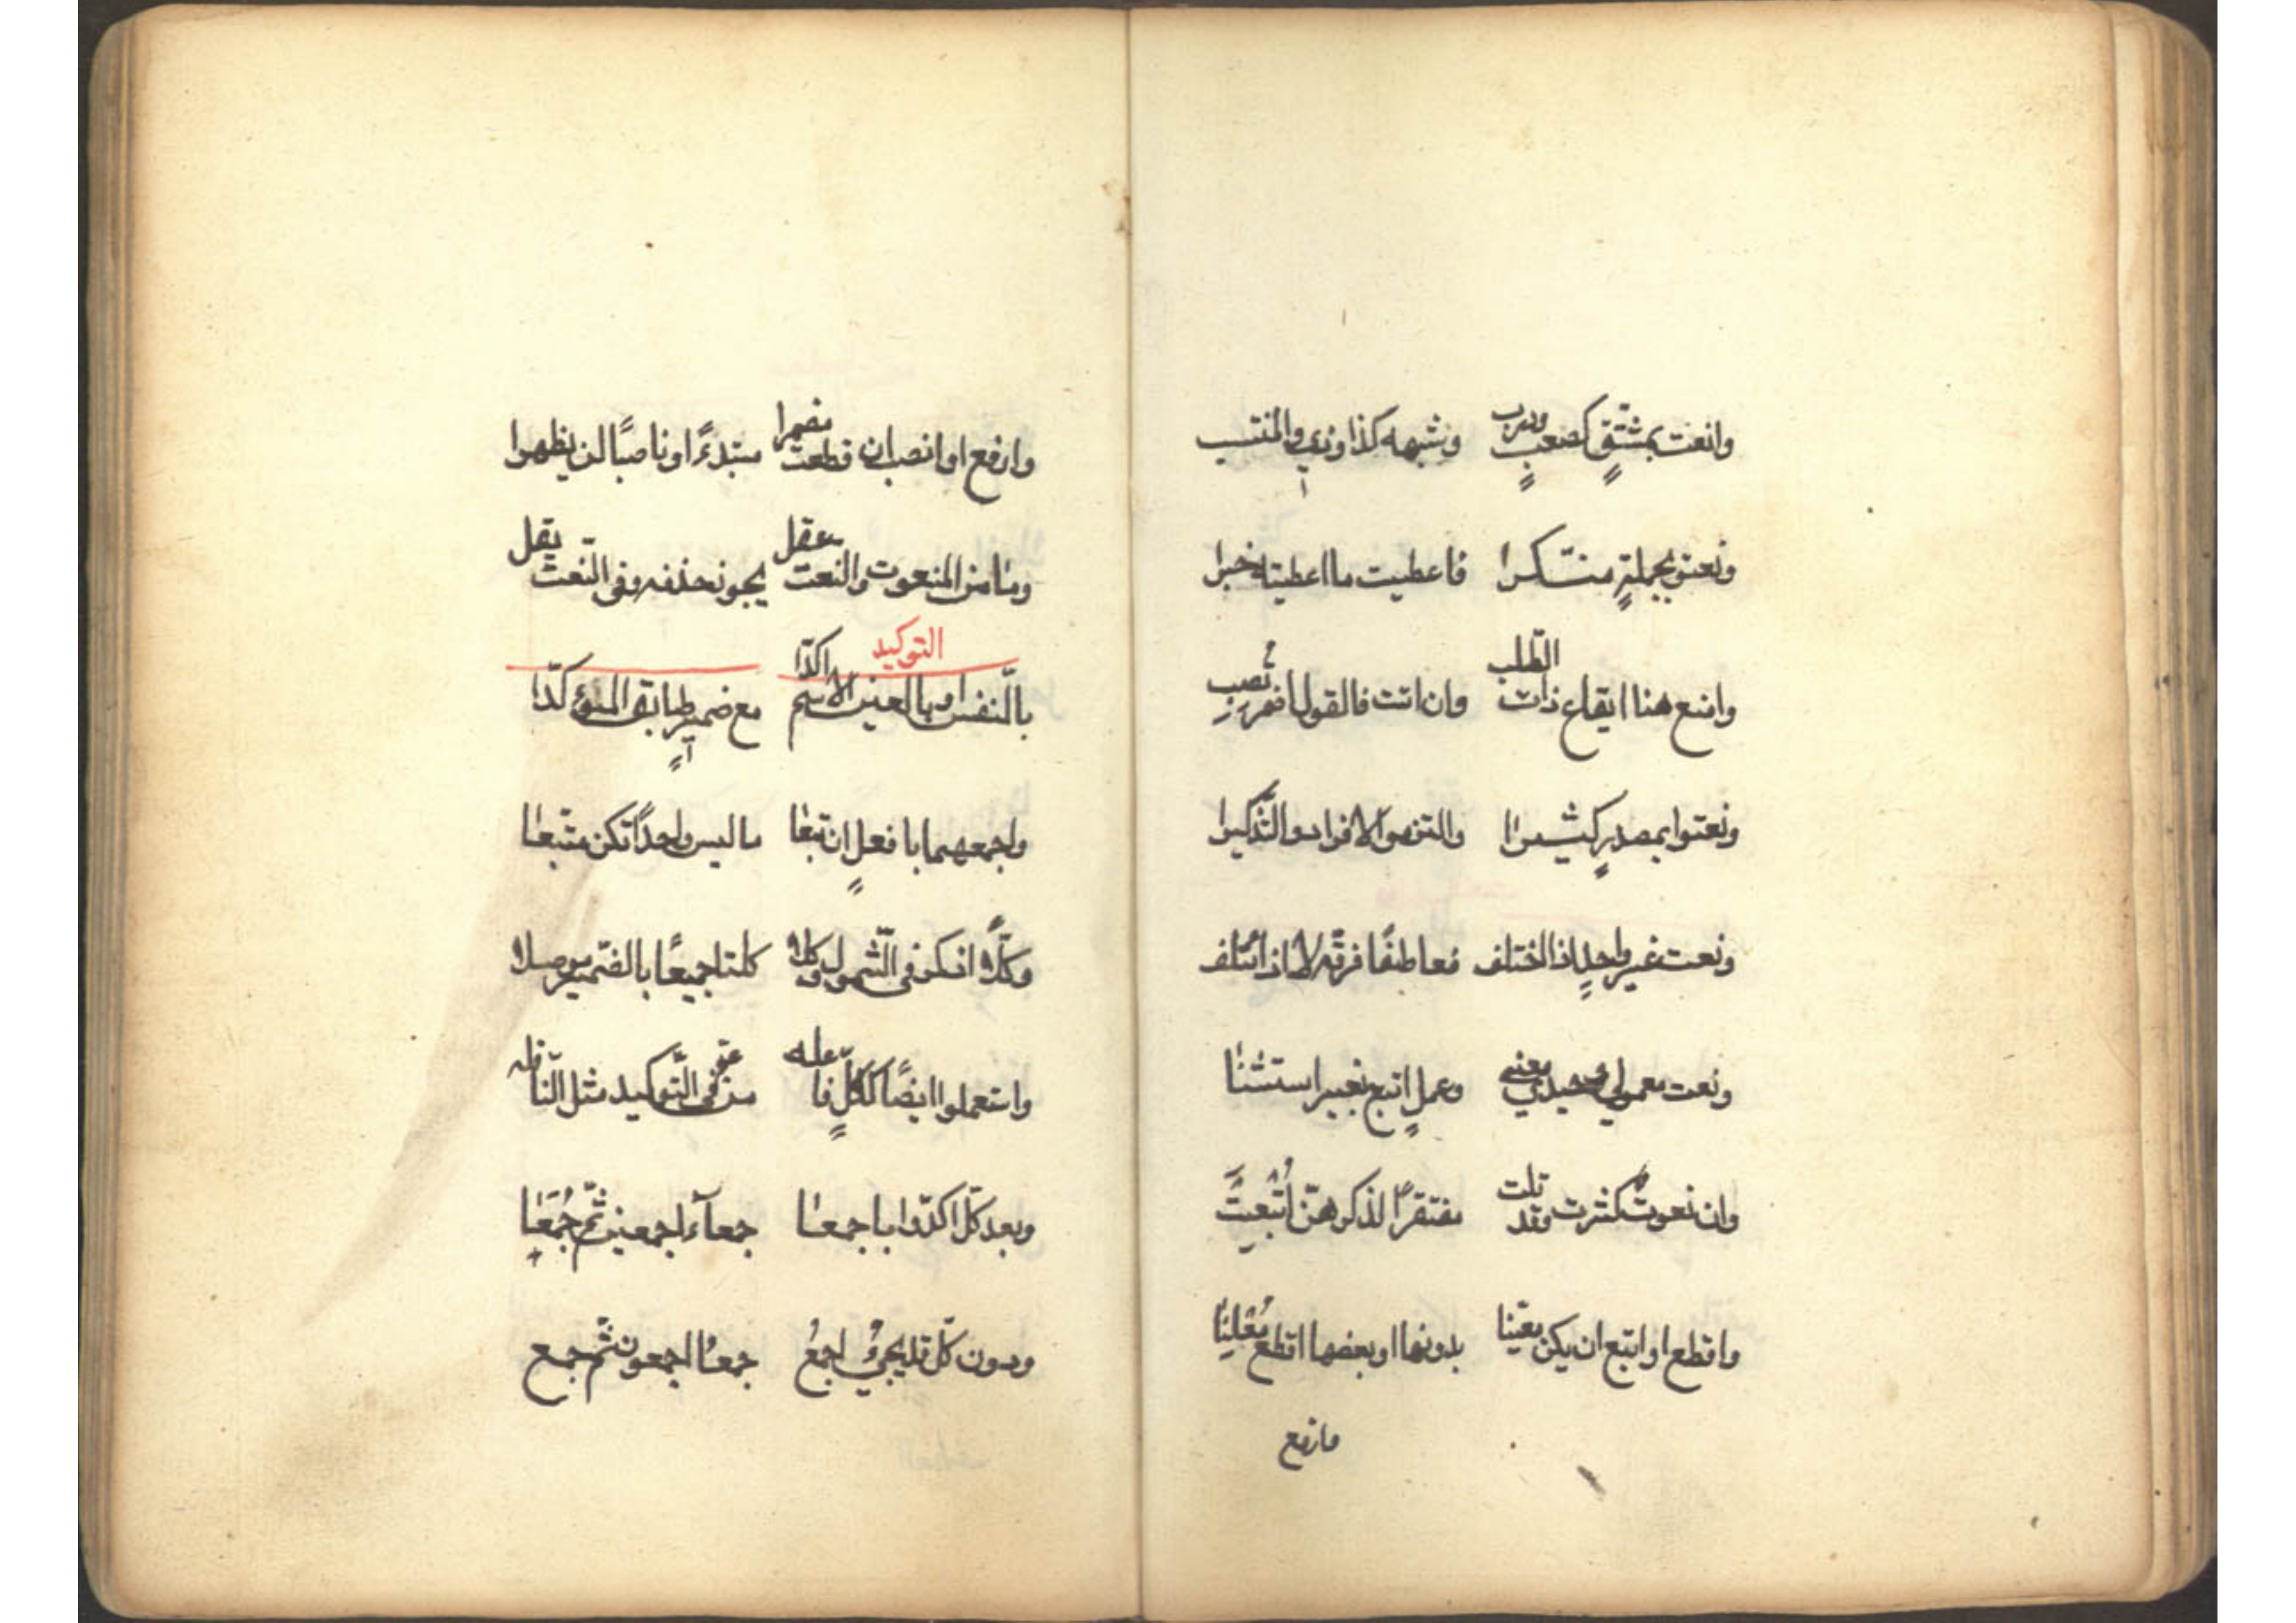 وانعت بمشتقٍ كصعبٍ وذرب وشبهه كذا وذي والمنتسب
ونعتوا بجملةٍ منكّرا فاعطيت ما اعطيته خبرا
وامنع هنا ايقاع ذات الطّلب وان اتت فالقول اضمر تصبِ
ونعتوا بمصدرٍ كثيرا والتزموا الافراد والتّذكيرا
ونعت غير واحدٍ اذا اختلف فعاطفًا فرّقه لا اذا ائتلف
ونعت معمولي وحيدي معنى وعملٍ اتبع بغير استثنا
وان نعوتٌ كثرت وقد تلت مفتقرًا لذكرهنّ اُتْبعتْ
واقطع او اتبع ان يكن معيّنا بدونها او بعضها اقطع مُعْلِنًا
وارفع
وارفع او انصب ان قطعت مضمرا مبتدءً او ناصبًا لن يظهرا
وما من المنعوت والنّعت عقل يجوز حذفه وفي النّعت يقل
التوكيد
بالنّفس او بالعين الاسم اكّدا مع ضميرٍ طابق المؤكّدا
واجمعهما بافعلٍ ان تبعا ما ليس واحدًا تكن متّبعا
وكلًّا اذكر في الشّمول وكلا كلتا جميعًا بالضّمير موصلا
واستعملوا ايضًا ككلٍّ فاعله من عمّ في التّوكيد مثل النّافله
وبعد كلّ اكّدوا باجمعا جمعآء اجمعين ثمّ جُمَعا
ودون كلّ قد يجيءُ اجمعُ جمعا اجمعون ثمّ جمع